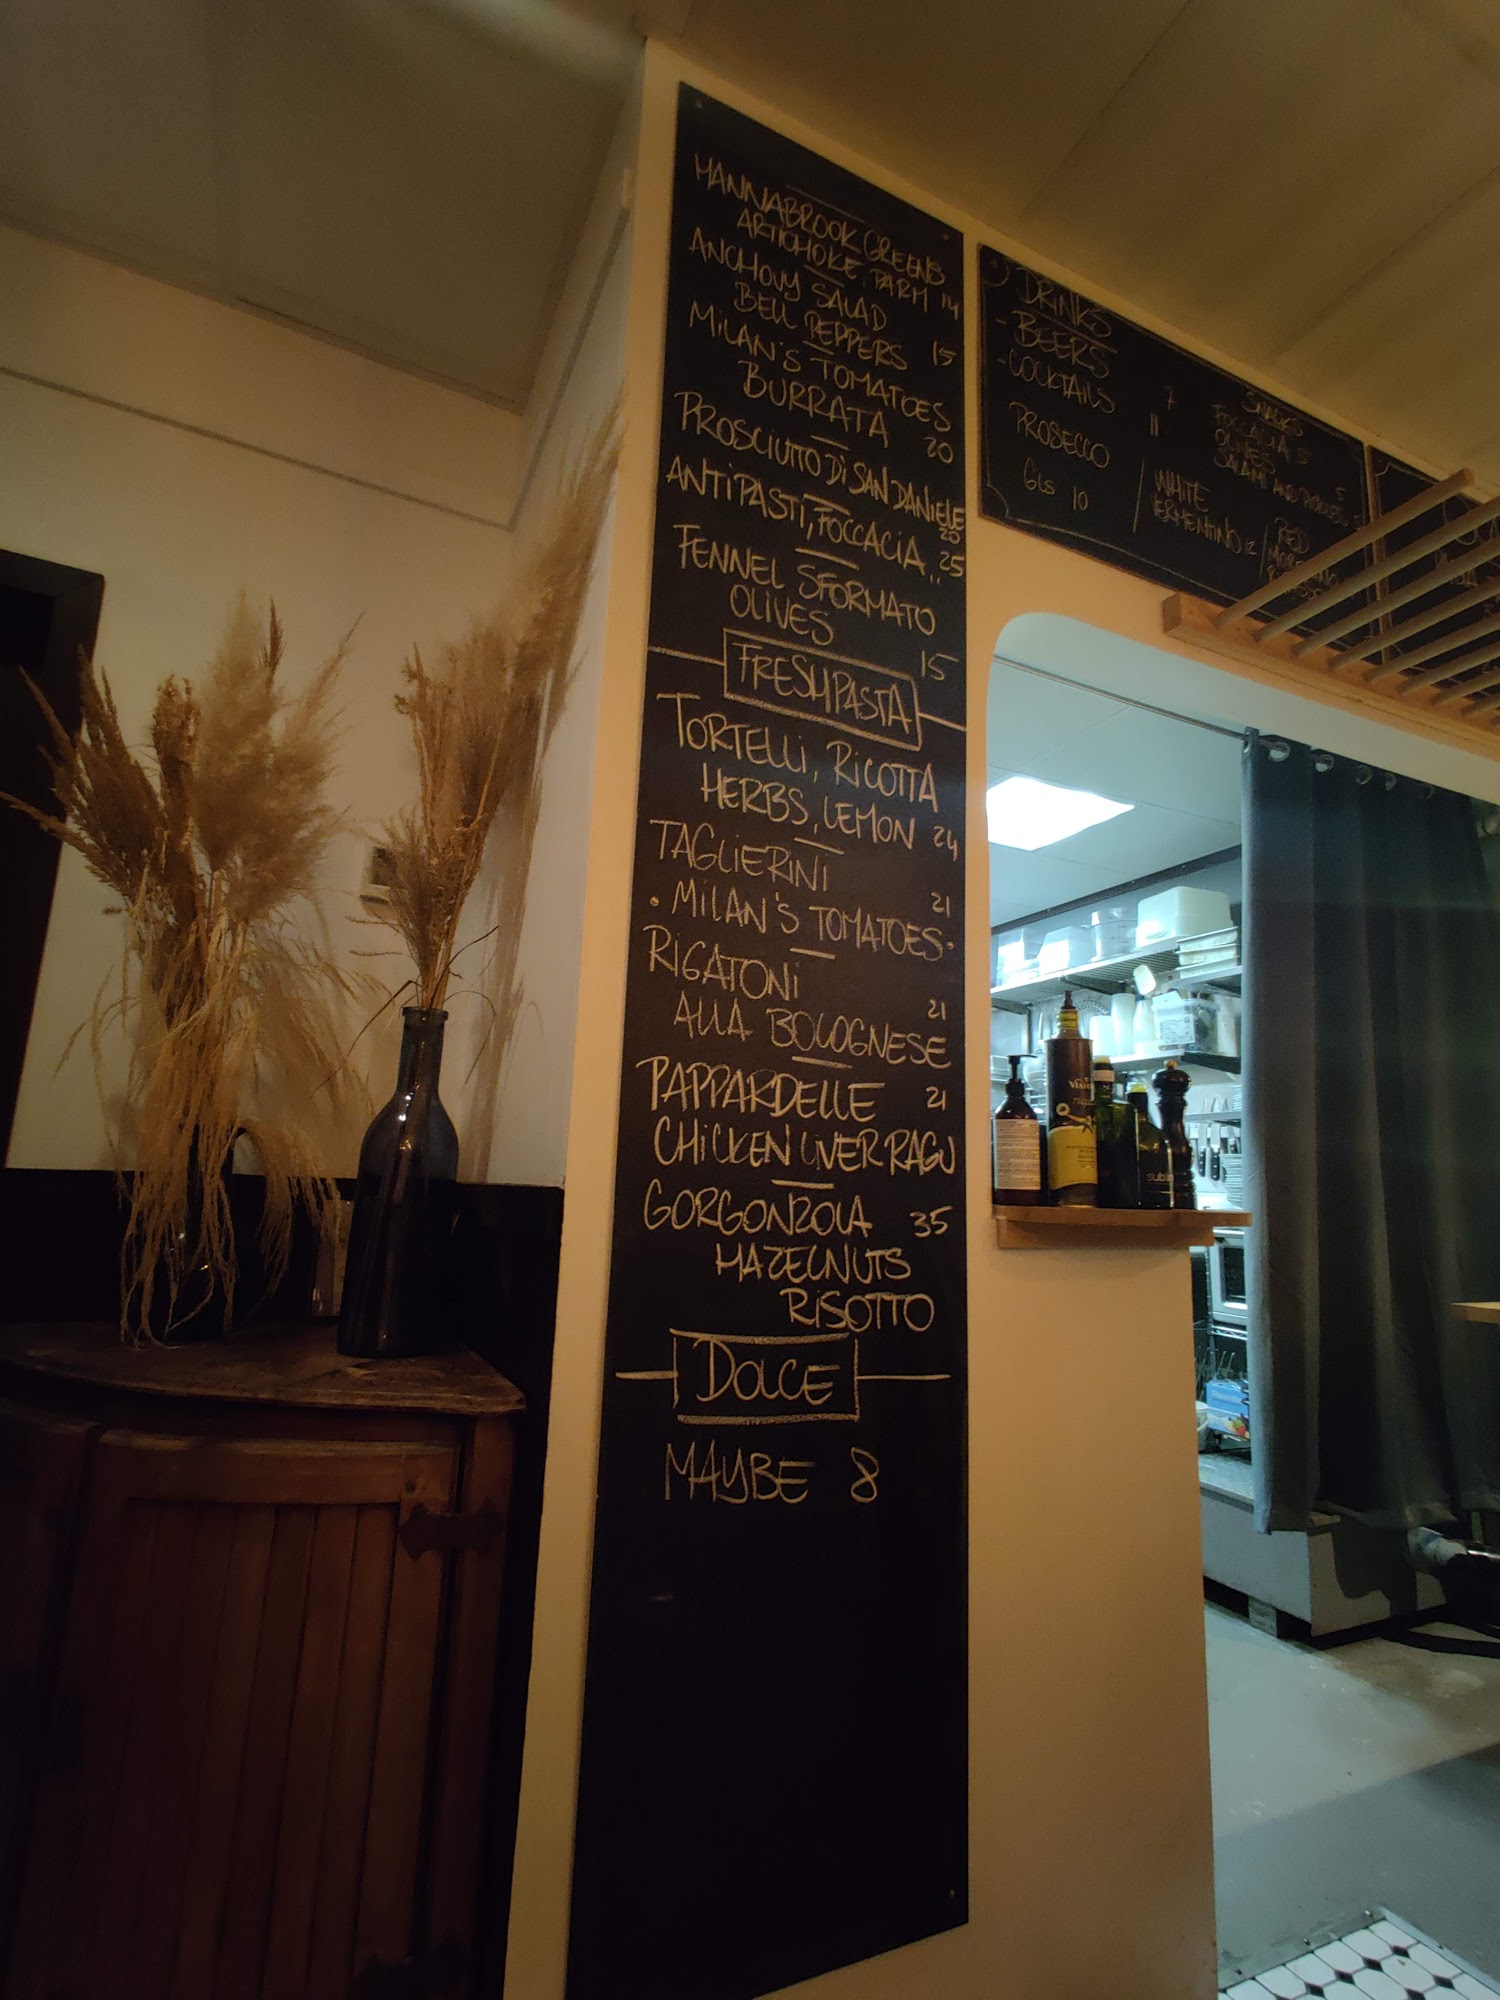 MANNABROOK GREENS
ARTICHOKE, PARM 14
ANCHOVY SALAD
BELL PEPPERS 15
MILAN'S TOMATOES
BURRATA 20
PROSCIUTTO DI SAN DANIELE
20
ANTIPASTI, FOCCACIA.. 25
FENNEL SFORMATO
OLIVES 15
FRESH PASTA
TORTELLI, RICOTTA
HERBS, LEMON 24
TAGLIERINI 21
. MILAN'S TOMATOES.
RIGATONI 21
ALLA BOLOGNESE
PAPPARDELLE 21
CHICKEN LIVER RAGU
GORGONZOLA 35
HAZELNUTS
RISOTTO
DOLCE
MAYBE 8
DRINKS
- BEERS 7
- COCKTAILS 11
PROSECCO
GLS 10
WHITE
VERMENTINO 12
RED
SNACKS
FOCCACIA 5
OLIVES 5
SALAMI AND